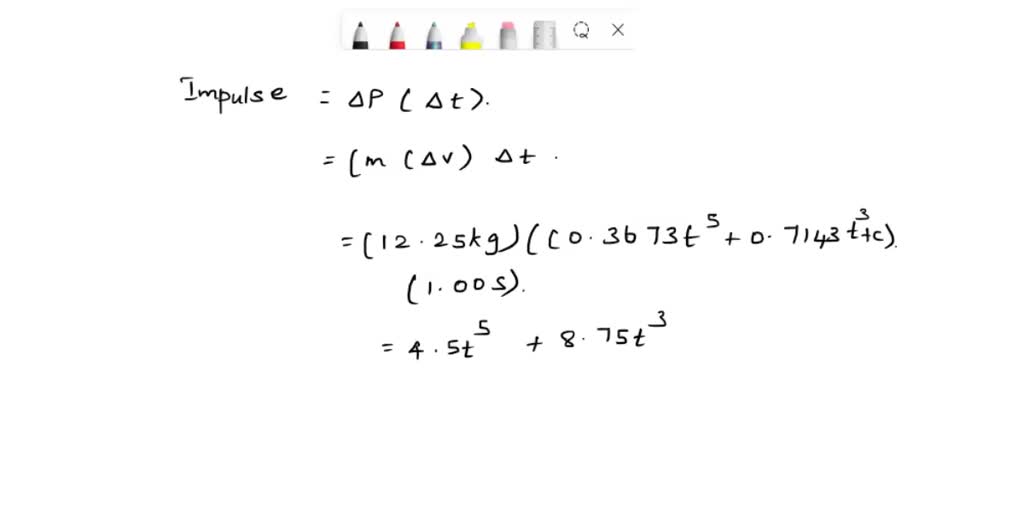 Impulse = ΔP (Δt).
= (m (Δv) Δt .
= (12.25kg) ((0.3673t⁵ + 0.7143t³+c).
(1.00s).
= 4.5t⁵ + 8.75t³